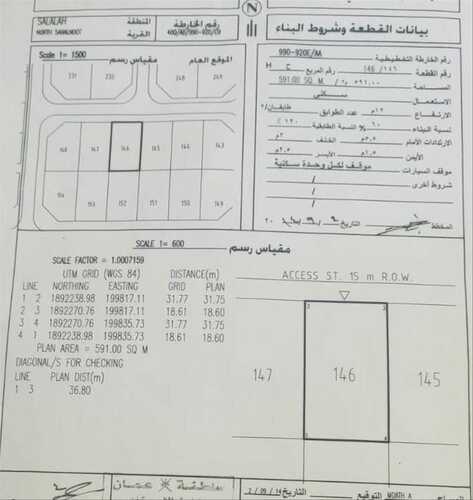 SALALAH
المنطقة
رقم الخارطة
NORTH SAWALNOOT
القرية
بيانات القطعة وشروط البناء
N
Scale 1= 1500
مقياس رسم
الموقع العام
231 230 249 248
148 147 146 145 144 143
154 153 152 151 150 149
990-920E/M
رقم الخارطة التخطيطية
رقم القطعة
146 / ١٤٦
رقم المربع
H C
591.00 SQ. M
٥٩١,٠٠
المساحة
الاستعمال
سكني
الارتفاع
١٢م
عدد الطوابق
طابقان/٢
نسبة البناء
٦٠٪
النسبة الطابقية
١٢٠٪
الارتدادات الأمام
٥م
الخلف
٣م
الأيمن
الأيسر
موقف السيارات
موقف لكل وحدة سكنية
شروط أخرى
المخطط
التاريخ
٢٠
SCALE 1= 600
مقياس رسم
SCALE FACTOR = 1.0007159
UTM GRID (WGS 84) DISTANCE(m)
LINE NORTHING EASTING GRID PLAN
1 2 1892238.98 199817.11 31.77 31.75
2 3 1892270.76 199817.11 18.61 18.60
3 4 1892270.76 199835.73 31.77 31.75
4 1 1892238.98 199835.73 18.61 18.60
PLAN AREA = 591.00 SQ M
DIAGONAL/S FOR CHECKING
LINE PLAN DIST(m)
1 3 36.80
ACCESS ST. 15 m R.O.W.
2 3
147 146 145
1 4
سلطنة عمان
2 / 09 / 14
التاريخ
التوقيع
MONTH A
المساح